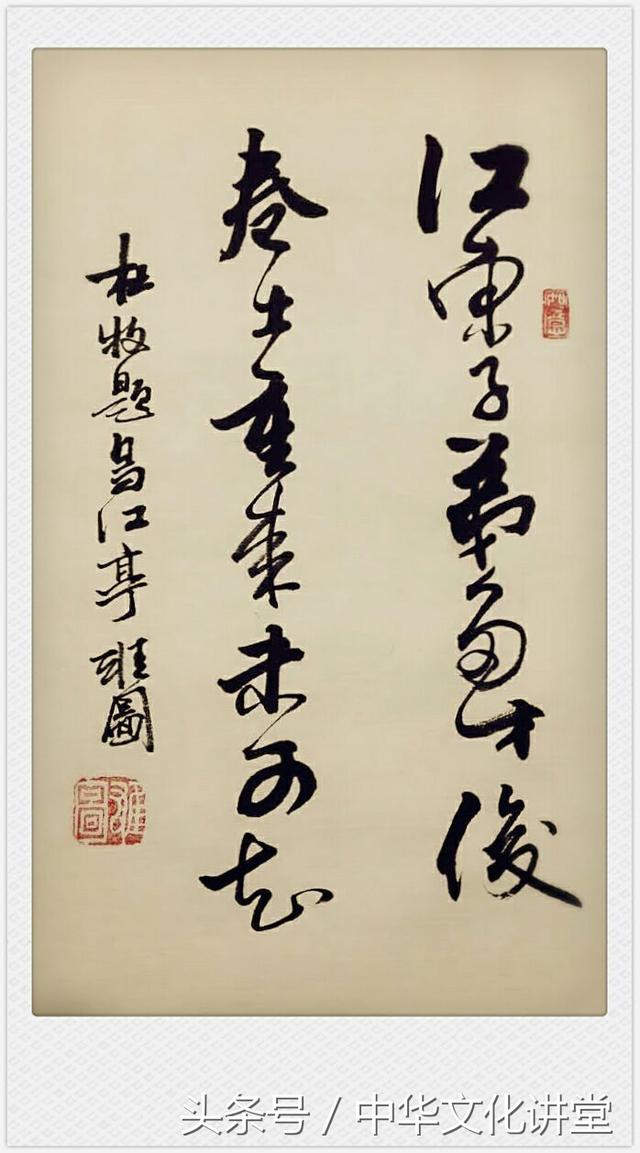 如意
江東子弟多才俊
卷土重來未可知
杜牧題烏江亭 雄圖
头条号 / 中华文化讲堂